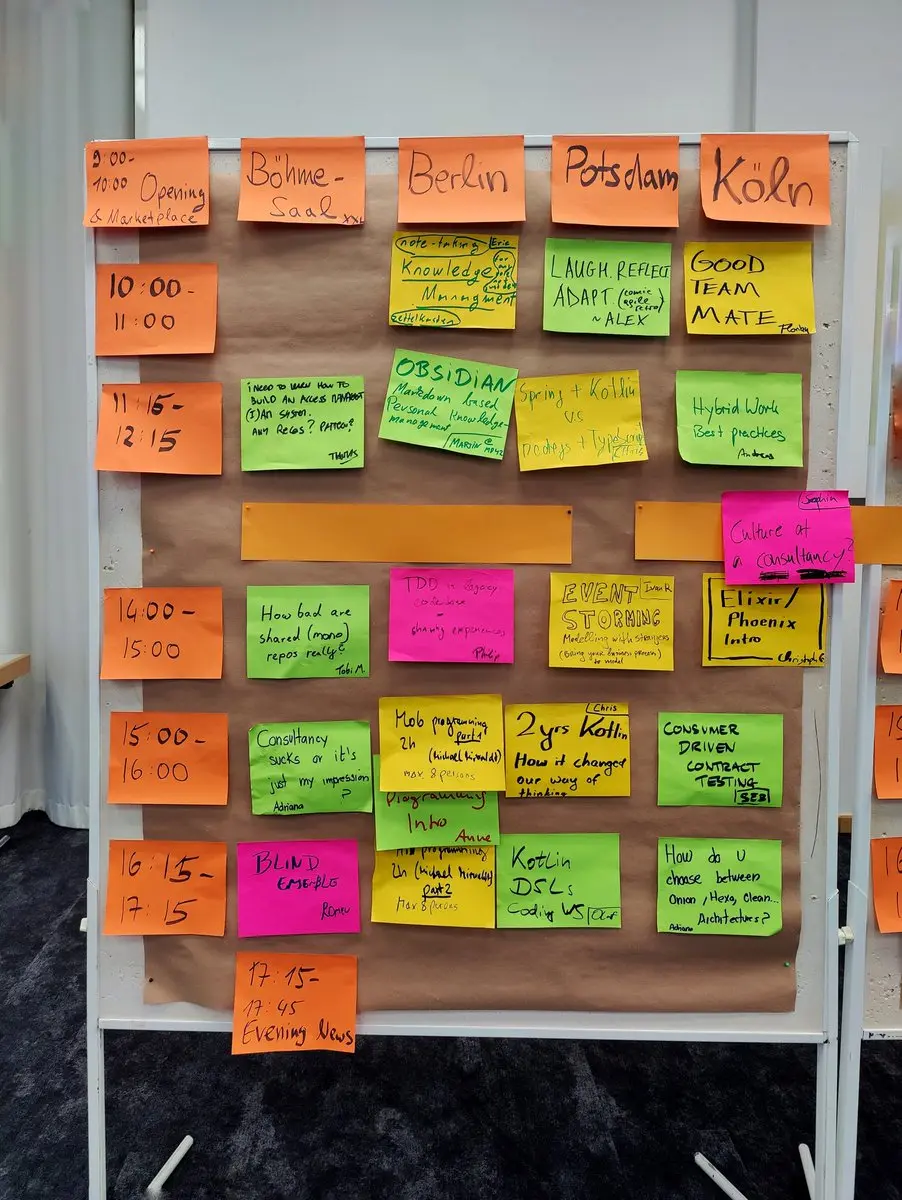 9:00-
10:00 Opening
& Marketplace
Böhme-
Saal xxl
Berlin
Potsdam
Köln
10:00-
11:00
note-taking Erie
Knowledge
Managment
Zettelkasten
LAUGH. REFLECT
ADAPT. (comic
agile
retro)
~ ALEX
GOOD
TEAM
MATE
11:15-
12:15
I NEED TO LEARN HOW TO
BUILD AN ACCESS
(I)AM SYSTEM.
ANY RECOS?
THOMAS
OBSIDIAN
Markdown based
Personal Knowledge-
management
MARTIN @
Spring + Kotlin
v.s
nodejs + Typescript
Hybrid Work
Best practices
Andreas
Sophia
Culture at
a consultancy?
14:00-
15:00
How bad are
shared (mono)
repos really?
Tobi M.
TDD in legacy
codebase
-
sharing experiences
Philip
EVENT Ivan K
STORMING
Modelling with strangers
(Bring your business process)
to model
Elixir/
Phoenix
Intro
Christoph E
15:00-
16:00
Consultancy
sucks or it's
just my impression
?
Adriana
Mob programming
2h part 1
max. 8 persons
Chris
2 yrs Kotlin
How it changed
our way of
thinking
CONSUMER
DRIVEN
CONTRACT
TESTING
SEBI
Programming
Intro Anne
16:15-
17:15
BLIND
ENSEMBLE
Mob programming
2h
part 2
Max 8 persons
Kotlin
DSLs
Coding WS Olaf
How do u
choose between
Onion, Hexa, Clean...
Architectures?
Adriana
17:15-
17:45
Evening News